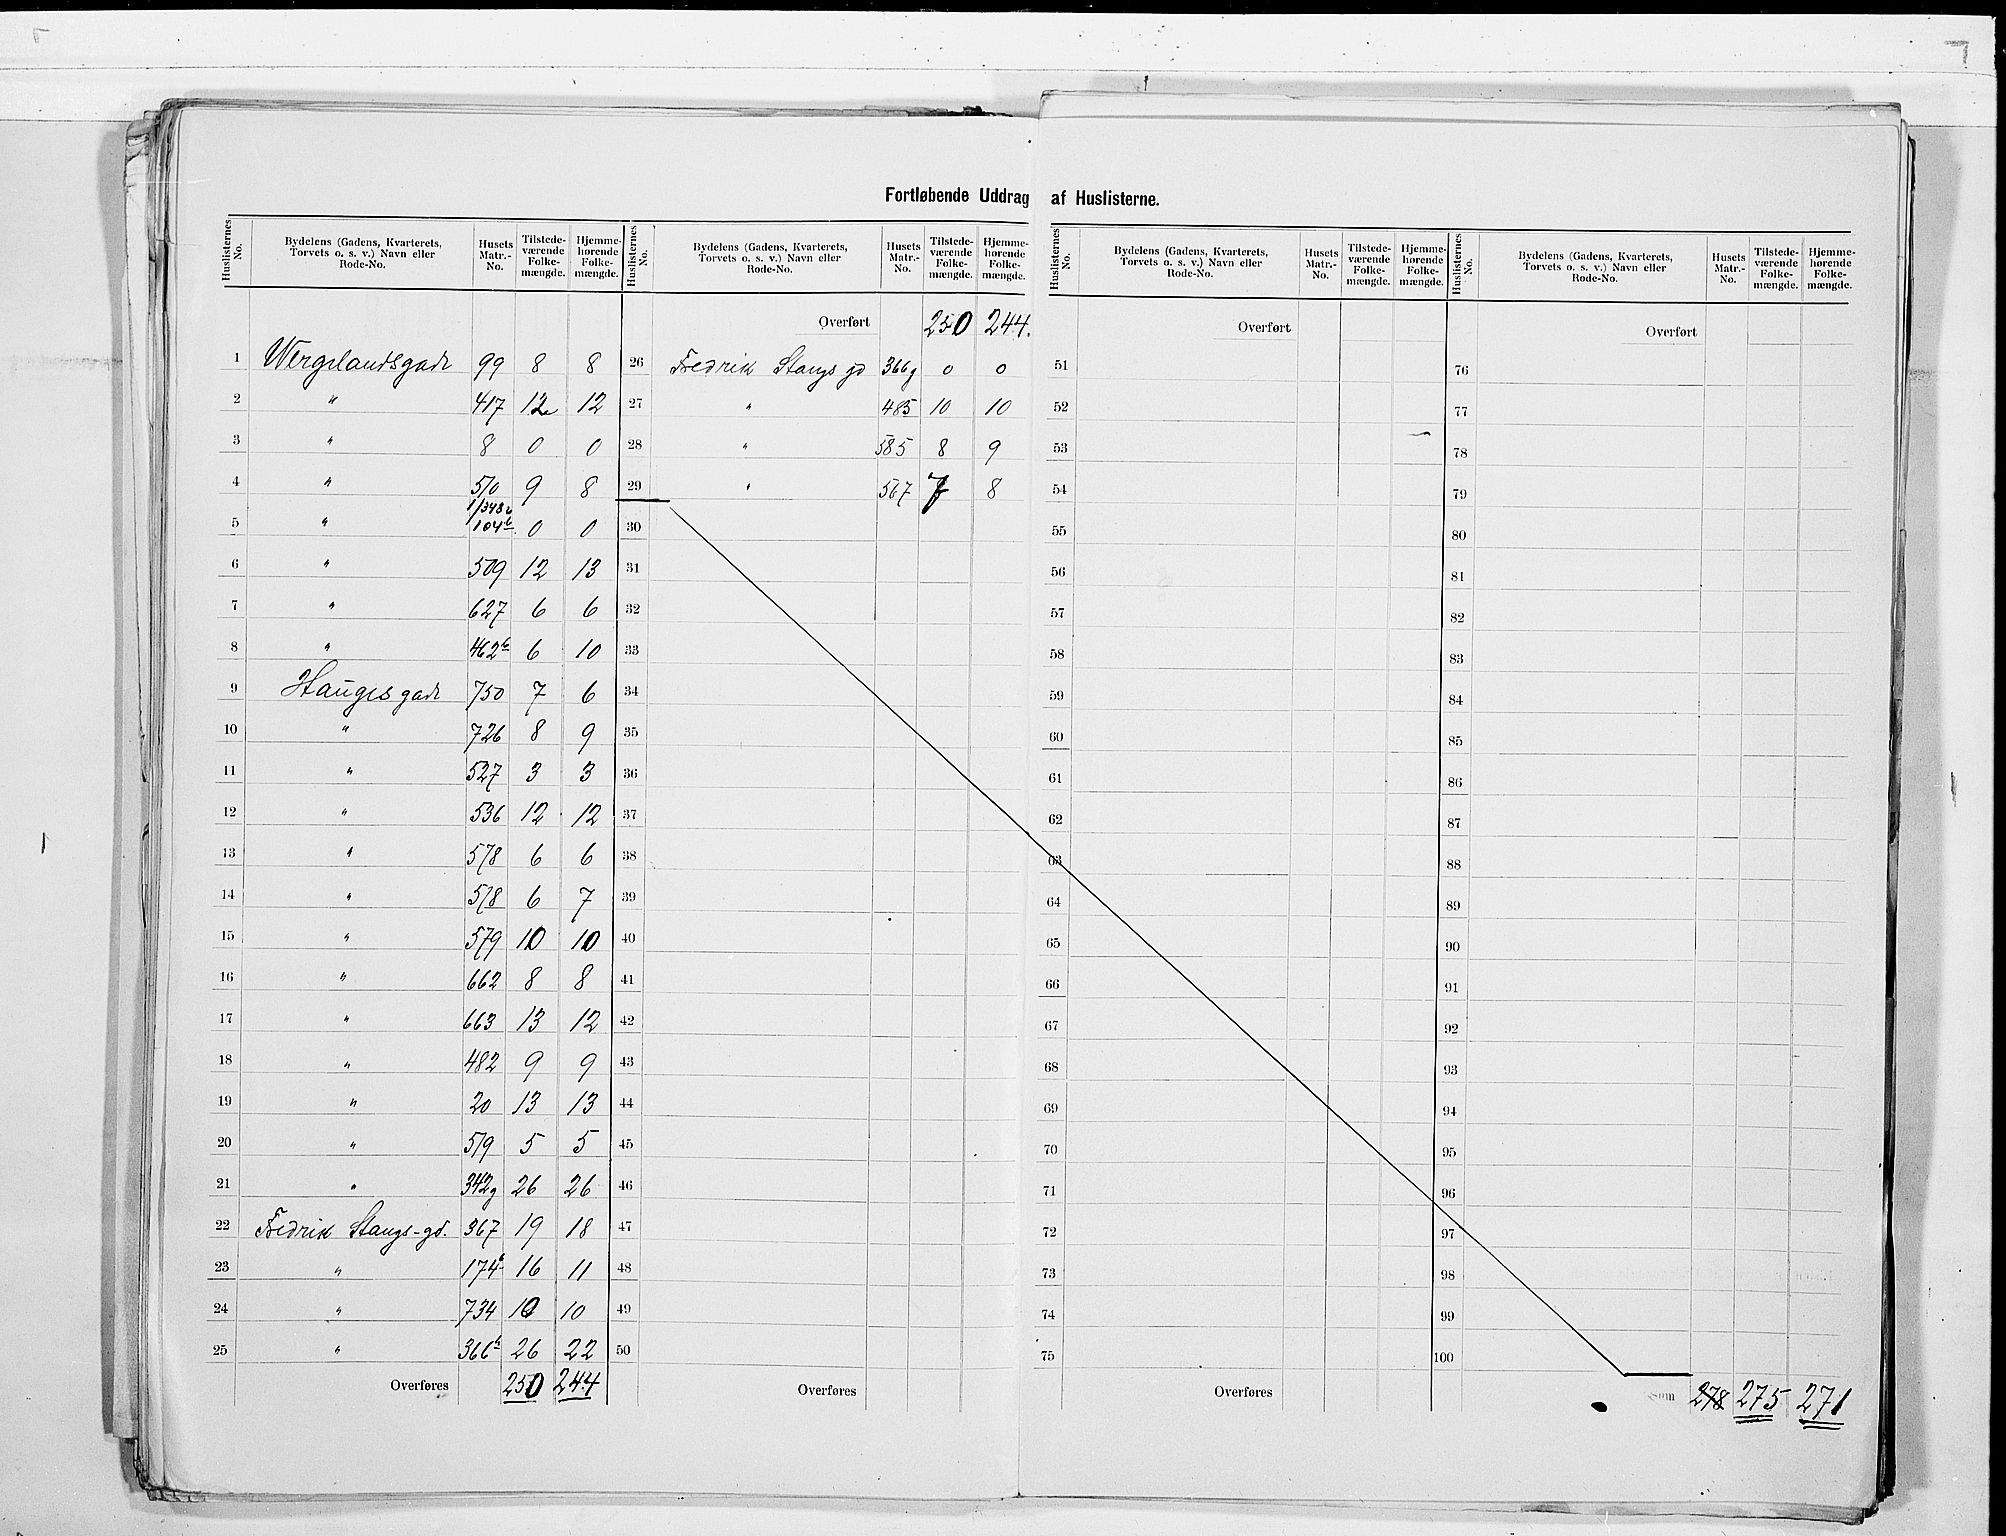 Fortløbende Uddrag af Huslisterne.
Huslisternes No. | Bydelens (Gadens, Kvarterets, Torvets o. s. v.) Navn eller Rode-No. | Husets Matr.-No. | Tilstede-værende Folke-mængde. | Hjemme-hørende Folke-mængde.
1 Wergelandsgade 99 8 8
2 " 417 12 12
3 " 8 0 0
4 " 510 9 8
5 " 1/348 b 104 b 0 0
6 " 509 12 13
7 " 627 6 6
8 " 462 b 6 10
9 Hauges gade 750 7 6
10 " 726 8 9
11 " 527 3 3
12 " 536 12 12
13 " 578 6 6
14 " 518 6 7
15 " 579 10 10
16 " 662 8 8
17 " 663 13 12
18 " 482 9 9
19 " 20 13 13
20 " 519 5 5
21 " 342g 26 26
22 Fredrik Stangs-gd. 367 19 18
23 " 174 b 16 11
24 " 734 10 10
25 " 366 b 26 22
Overføres 250 244
Huslisternes No. | Bydelens (Gadens, Kvarterets, Torvets o. s. v.) Navn eller Rode-No. | Husets Matr.-No. | Tilstede-værende Folke-mængde. | Hjemme-hørende Folke-mængde.
Overført 250 244.
26 Fredrik Stangs gd 366g 0 0
27 " 485 10 10
28 " 585 8 9
29 " 567 7 8
30
31
32
33
34
35
36
37
38
39
40
41
42
43
44
45
46
47
48
49
50
Overføres
Huslisternes No. | Bydelens (Gadens, Kvarterets, Torvets o. s. v.) Navn eller Rode-No. | Husets Matr.-No. | Tilstede-værende Folke-mængde. | Hjemme-hørende Folke-mængde.
Overført
51
52
53
54
55
56
57
58
59
60
61
62
63
64
65
66
67
68
69
70
71
72
73
74
75
Overføres
Huslisternes No. | Bydelens (Gadens, Kvarterets, Torvets o. s. v.) Navn eller Rode-No. | Husets Matr.-No. | Tilstede-værende Folke-mængde. | Hjemme-hørende Folke-mængde.
Overført
76
77
78
79
80
81
82
83
84
85
86
87
88
89
90
91
92
93
94
95
96
97
98
99
100
Sum 278 275 271